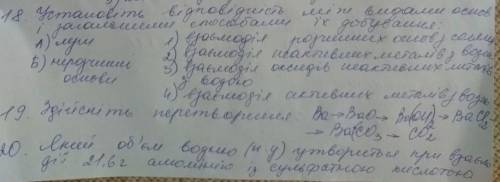 18. Установіть відповідність між видами основ
і загальними способами їх добування:
А) луги 1) взаємодія розчинних основ з солями
2) взаємодія неактивних металів з водою
Б) нерозчинні основи 3) взаємодія оксидів неактивних металів
з водою
4) взаємодія активних металів з водою
19. Здійсніть перетворення Ba→BaO→Ba(OH)₂→BaCl₂
→BaCO₃→CO₂
20. Який об'єм водню (н.у) утвориться при взаємо
дії 21,6г алюмінію із сульфатною кислотою